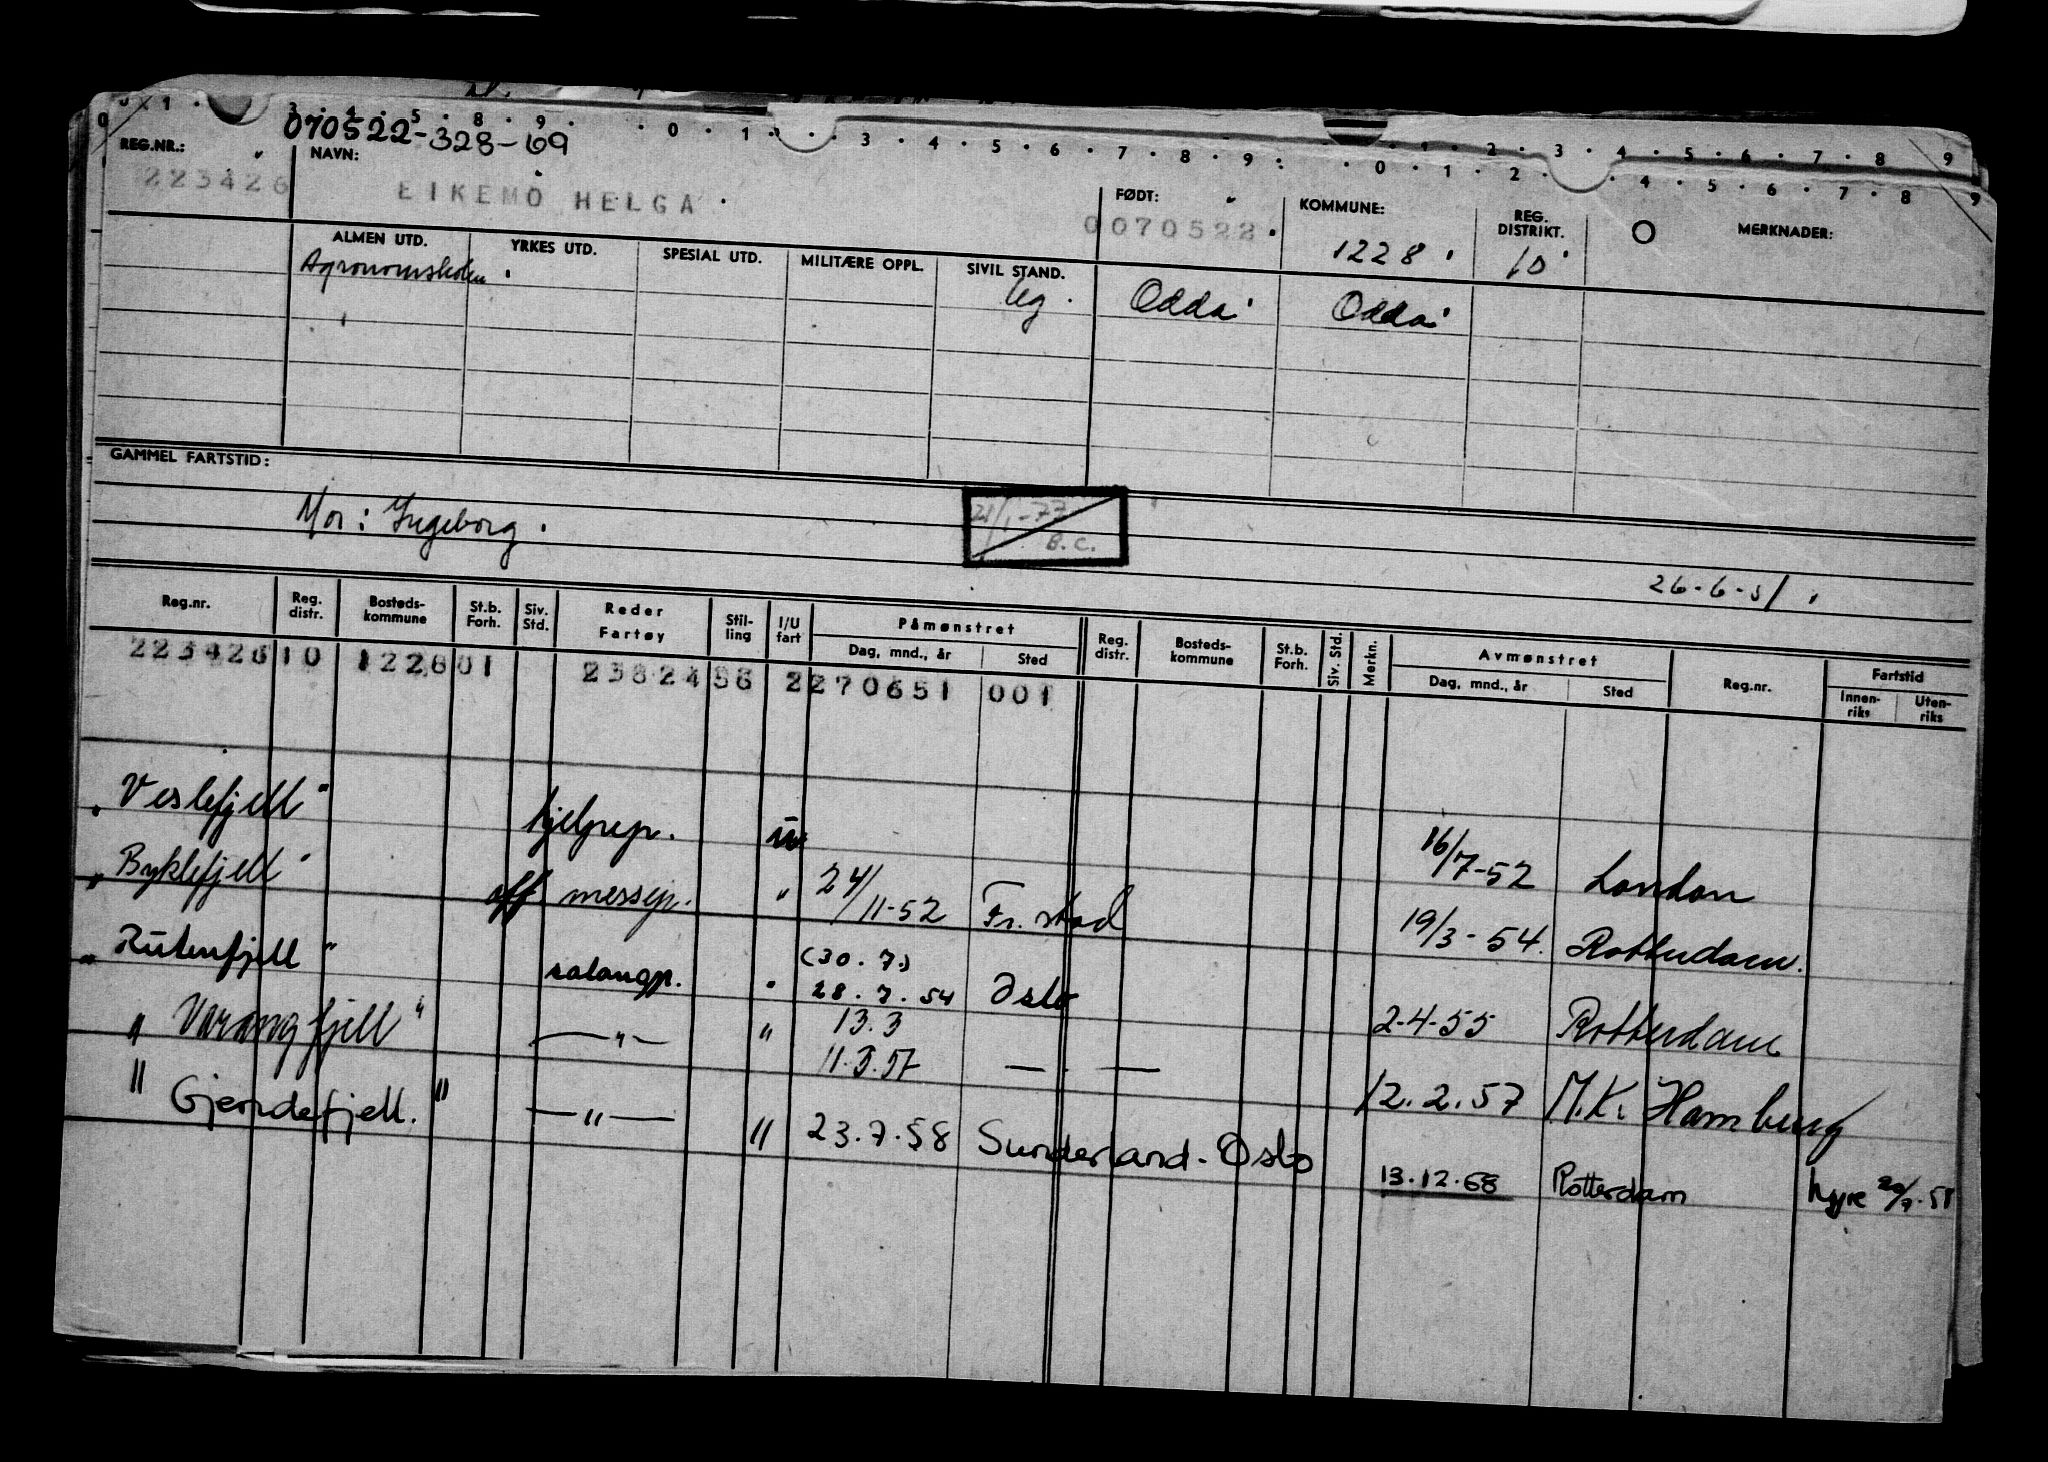 070522-328-69
REG.NR.: NAVN: FØDT: KOMMUNE: REG. DISTRIKT. MERKNADER:
223426 EIKEMO HELGA 0070522 1228 10
ALMEN UTD. YRKES UTD. SPESIAL UTD. MILITÆRE OPPL. SIVIL STAND.
Agronomskolen Ug. Odda Odda
GAMMEL FARTSTID:
Mor: Ingeborg.
21/1-77
B.C.
26-6-51
Reg.nr. Reg. distr. Bosteds-kommune St.b. Forh. Siv. Std. Reder Fartøy Stil-ling I/U fart Påmønstret Dag, mnd., år Sted Reg. distr. Bosteds-kommune St.b. Forh. Siv. Std. Merkn. Avmønstret Dag, mnd., år Sted Reg.nr. Fartstid Innen-riks Uten-riks
223426 10 1228 01 2382456 2 270651 001
"Veslefjell" hjelpep. u 16/7-52 London
"Byklefjell" off messep. " 24/11-52 Fr.stad 19/3-54. Rotterdam.
"Rutenfjell" salongp. " (30.7.) 28.7.54 Oslo 2-4-55 Rotterdam
"Varangfjell" —"— " 13.3 11.3.57 — . — 12.2.57 M.K. Hamburg
"Gjendefjell." —"— " 23.7.58 Sunderland-Oslo 13.12.68 Rotterdam hyre 20/7.58